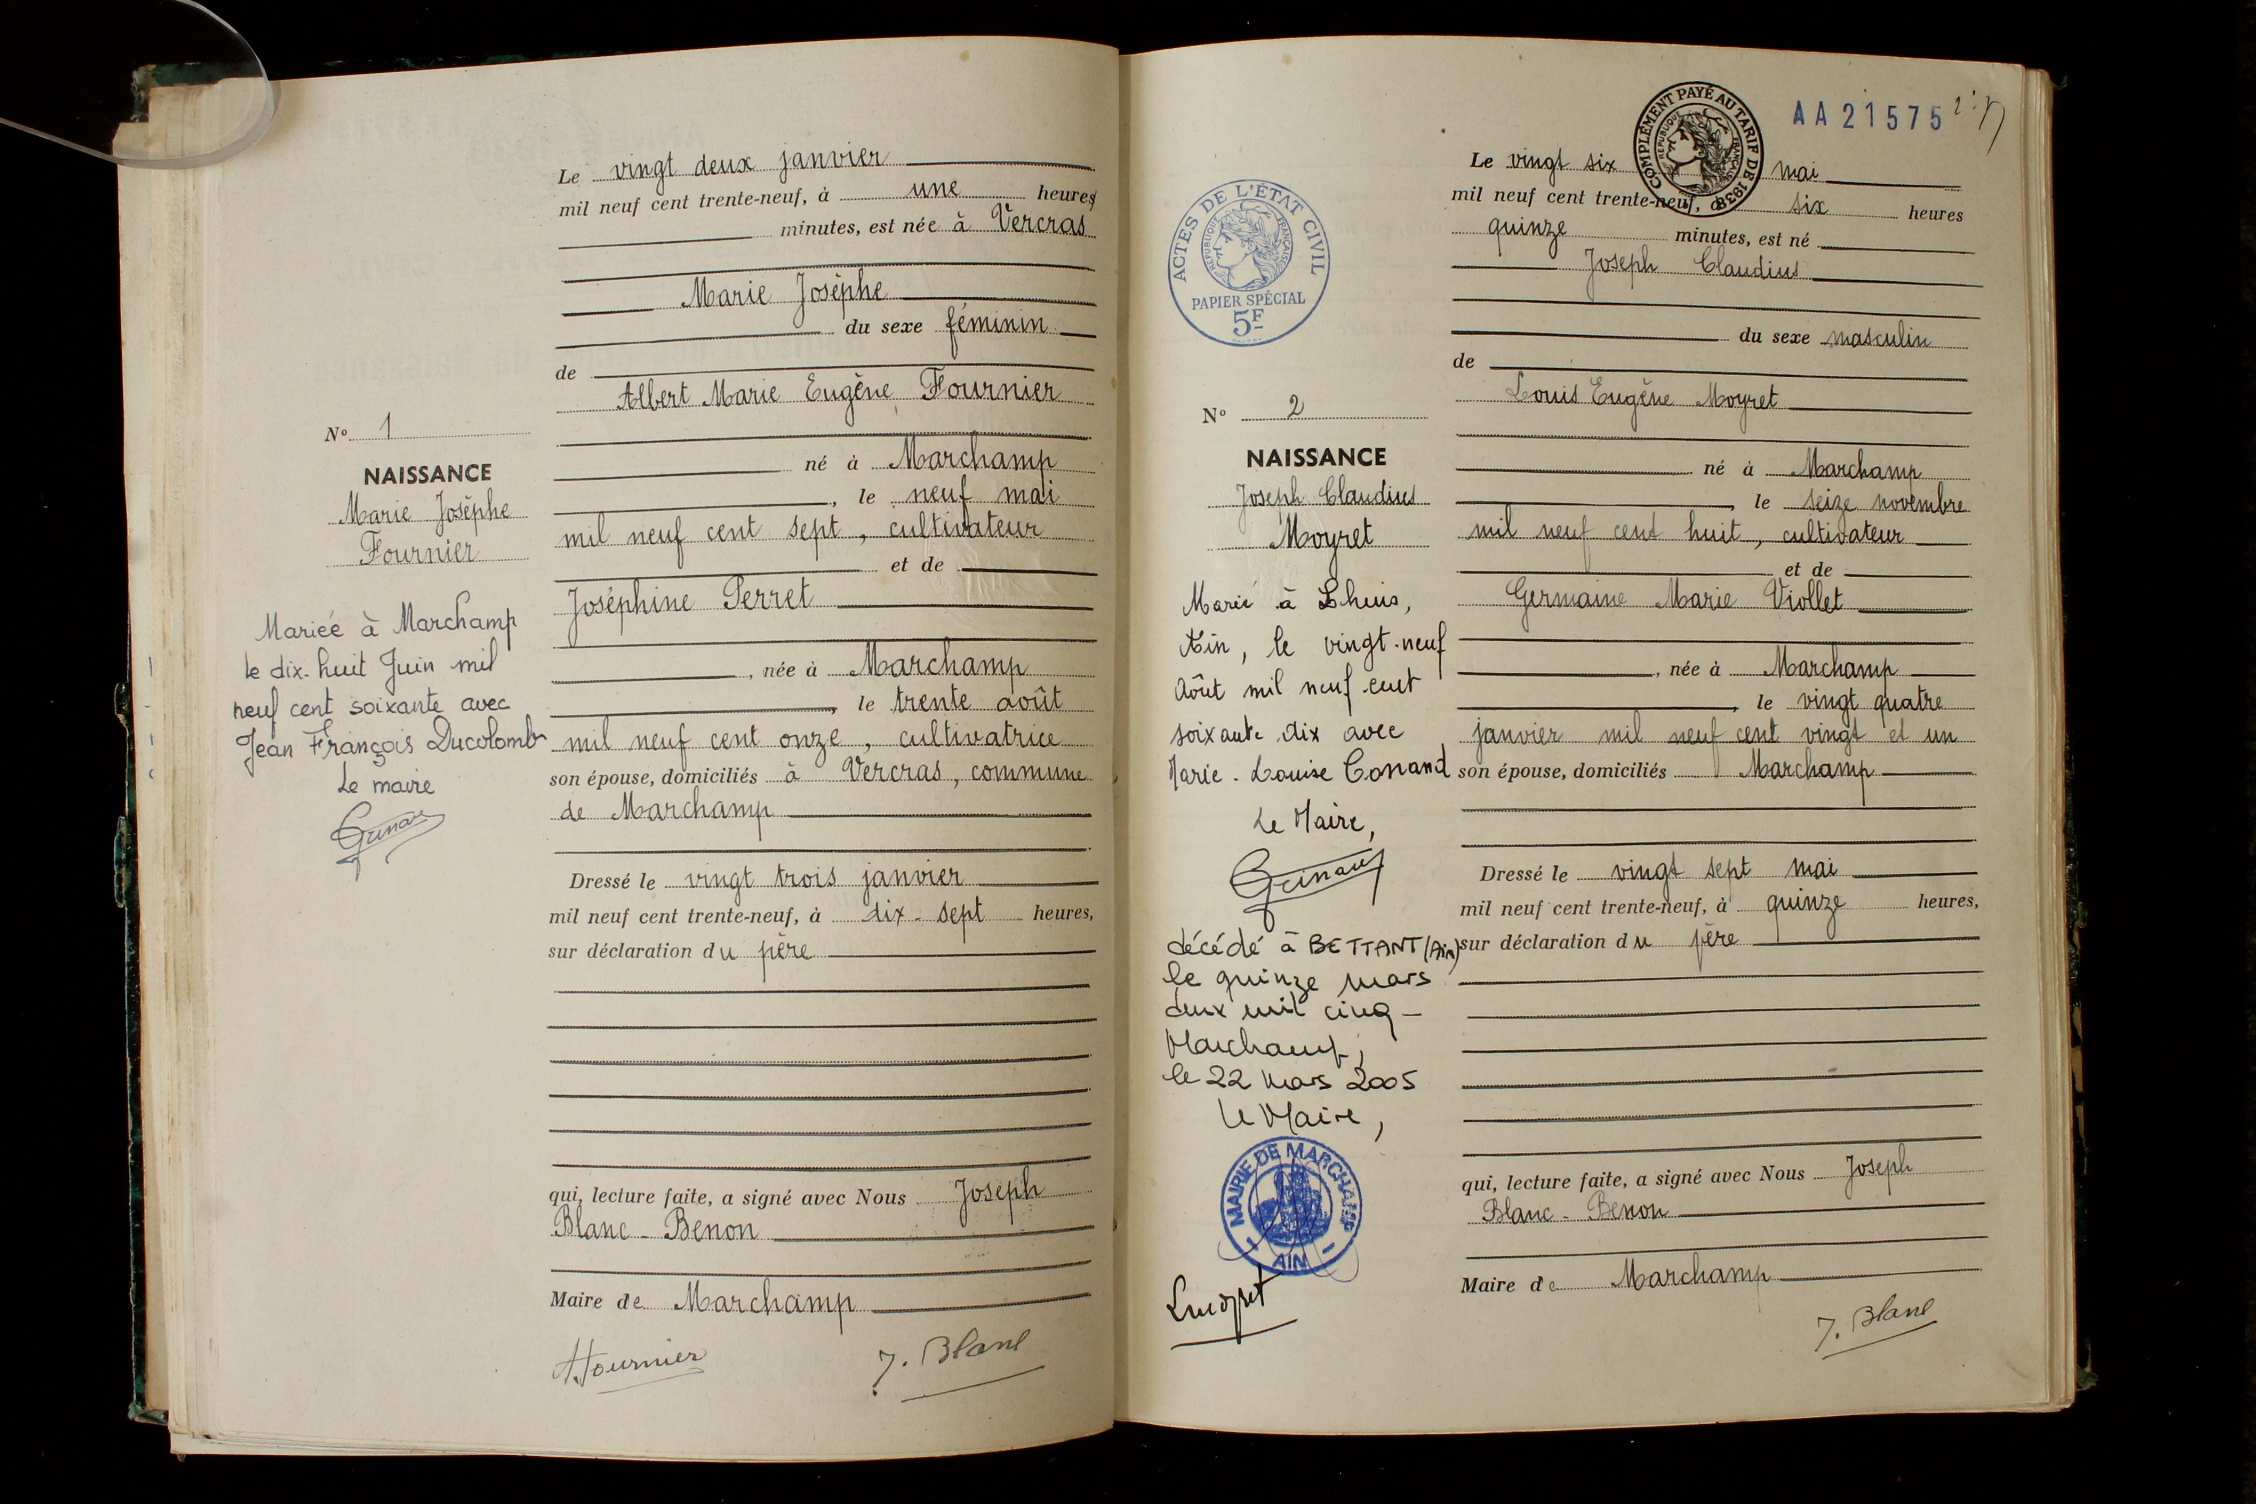 Le vingt deux janvier
mil neuf cent trente-neuf, à une heures
minutes, est née à Vercras
Marie Josèphe
du sexe féminin
de
Albert Marie Eugène Fournier
né à Marchamp
, le neuf mai
mil neuf cent sept, cultivateur
et de
Joséphine Perret
, née à Marchamp
, le trente août
mil neuf cent onze, cultivatrice
son épouse, domiciliés à Vercras, commune
de Marchamp
Dressé le vingt trois janvier
mil neuf cent trente-neuf, à dix-sept heures,
sur déclaration du père
qui, lecture faite, a signé avec Nous Joseph
Blanc-Benon
Maire de Marchamp
A.Fournier J. Blanc
N° 1
NAISSANCE
Marie Josèphe
Fournier
Mariée à Marchamp
le dix-huit Juin mil
neuf cent soixante avec
Jean François Ducolomb
Le maire
AA21575
COMPLÉMENT PAYÉ AU TARIF DE 1938
RÉPUBLIQUE FRANÇAISE
Le vingt six mai
mil neuf cent trente-neuf, à six heures
quinze minutes, est né
Joseph Claudius
du sexe masculin
de
Louis Eugène Moyret
né à Marchamp
, le seize novembre
mil neuf cent huit, cultivateur
et de
Germaine Marie Viollet
, née à Marchamp
, le vingt quatre
janvier mil neuf cent vingt et un
son épouse, domiciliés Marchamp
Dressé le vingt sept mai
mil neuf cent trente-neuf, à quinze heures,
sur déclaration du père
qui, lecture faite, a signé avec Nous Joseph
Blanc-Benon
Maire de Marchamp
J. Blanc
ACTES DE L'ÉTAT CIVIL
RÉPUBLIQUE FRANÇAISE
PAPIER SPÉCIAL
5F
N° 2
NAISSANCE
Joseph Claudius
Moyret
Marié à Lhuis,
Ain, le vingt-neuf
Août mil neuf cent
soixante dix avec
Marie-Louise Conand
Le Maire,
décédé à BETTANT (Ain)
le quinze mars
deux mil cinq -
Marchamp,
le 22 mars 2005
Le Maire,
MAIRIE DE MARCHAMP
AIN